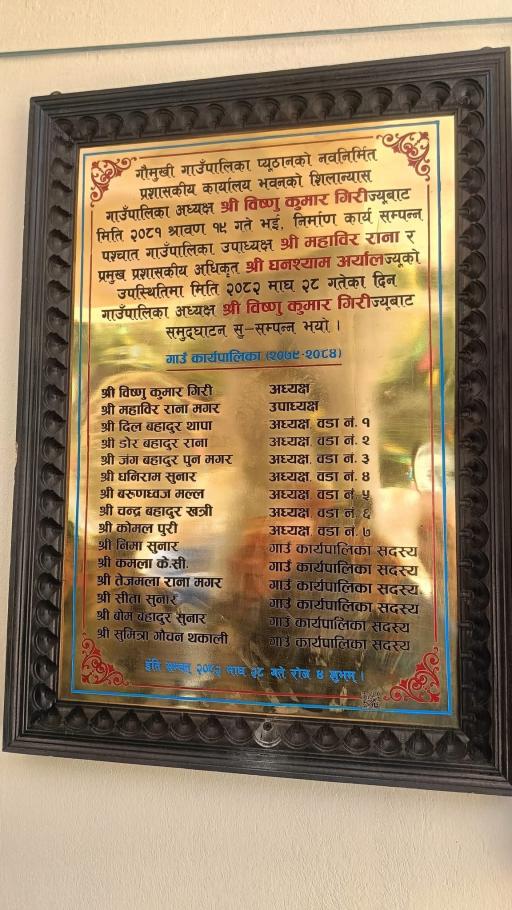 गौमुखी गाउँपालिका प्यूठानको नवनिर्मित
प्रशासकीय कार्यालय भवनको शिलान्यास
गाउँपालिका अध्यक्ष श्री विष्णु कुमार गिरीज्यूबाट
मिति २०८१ श्रावण १९ गते भई, निर्माण कार्य सम्पन्न
पश्चात गाउँपालिका उपाध्यक्ष श्री महाविर राना र
प्रमुख प्रशासकीय अधिकृत श्री घनश्याम अर्यालज्यूको
उपस्थितिमा मिति २०८२ माघ २८ गतेका दिन
गाउँपालिका अध्यक्ष श्री विष्णु कुमार गिरीज्यूबाट
समुद्घाटन सु-सम्पन्न भयो ।
गाउँ कार्यपालिका (२०७९-२०८४)
श्री विष्णु कुमार गिरी अध्यक्ष
श्री महाविर राना मगर उपाध्यक्ष
श्री दिल बहादुर थापा अध्यक्ष, वडा नं. १
श्री डोर बहादुर राना अध्यक्ष, वडा नं. २
श्री जंग बहादुर पुन मगर अध्यक्ष, वडा नं. ३
श्री घनिराम सुनार अध्यक्ष, वडा नं. ४
श्री बरुणध्वज मल्ल अध्यक्ष, वडा नं. ५
श्री चन्द्र बहादुर खत्री अध्यक्ष, वडा नं. ६
श्री कोमल पुरी अध्यक्ष, वडा नं. ७
श्री निमा सुनार गाउँ कार्यपालिका सदस्य
श्री कमला के.सी. गाउँ कार्यपालिका सदस्य
श्री तेजमला राना मगर गाउँ कार्यपालिका सदस्य
श्री सीता सुनार गाउँ कार्यपालिका सदस्य
श्री बोम बहादुर सुनार गाउँ कार्यपालिका सदस्य
श्री सुमित्रा गौचन थकाली गाउँ कार्यपालिका सदस्य
इति सम्वत् २०८२ माघ २८ गते रोज ४ शुभम् ।